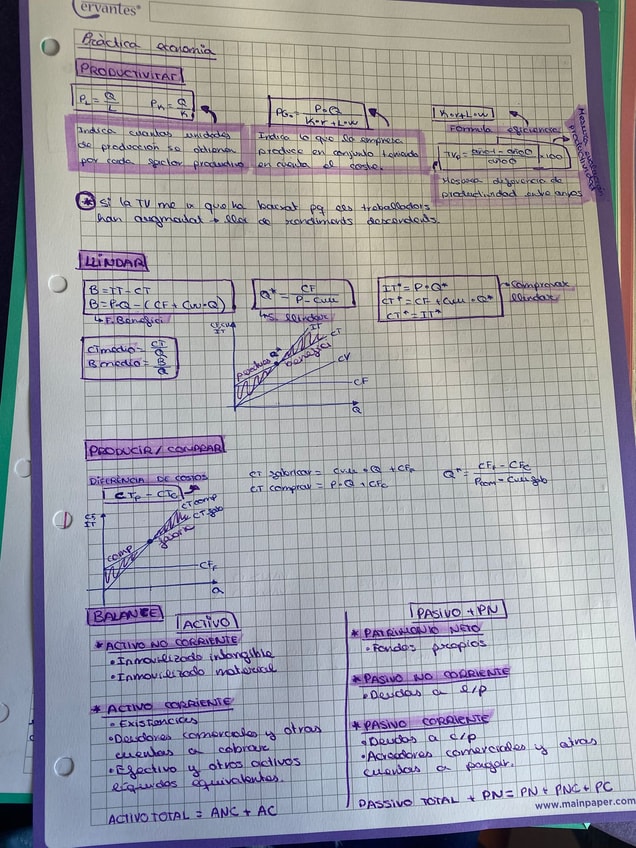 ervantes®
Pràctica economia
PRODUCTIVITAT
PL = Q/L PK = Q/K
Indica cuantas unidades
de producción se obtienen
por cada factor productivo
PG = P·Q / K·r + L·w
Indica lo que la empresa
produce en conjunto teniendo
en cuenta el coste.
K·r + L·w
Fórmula eficiencia
TV = año 1 - año 0 / año 0 × 100
Mesura diferencia de
productividad entre años
productividad
* Si la TV me da que ha baixat pq els treballadors
han augmentat → llei de rendiments descendents.
LLINDAR
B = IT - CT
B = P·Q - (CF + CVu·Q)
↳ F. Benefici
Q* = CF / P - CVu
↳ F. llindar
IT* = P·Q*
CT* = CF + CVu·Q*
CT* = IT*
→ comprovar
llindar
CTmedio = CT/Q
Bmedio = B/Q
IT
IT
CT
perdues
Q*
benefici
CV
CF
Q
PRODUCIR / COMPRAR
DIFERÈNCIA DE COSTOS
CTF - CTC
CT fabricar = CVu · Q + CFF
CT comprar = P·Q + CFC
Q* = CFF - CFC / Pcom - CVu fab
CF
IT
CT comp
CT fab
comp
fabricar
CFF
Q
BALANCE
ACTIVO
* ACTIVO NO CORRIENTE
• Inmovilizado intangible
• Inmovilizado material
* ACTIVO CORRIENTE
• Existencias
• Deudores comerciales y otras
cuentas a cobrar
• Efectivo y otros activos
líquidos equivalentes.
ACTIVO TOTAL = ANC + AC
PASIVO + PN
* PATRIMONIO NETO
• Fondos propios
* PASIVO NO CORRIENTE
• Deudas a l/p
* PASIVO CORRIENTE
• Deudas a c/p
• Acreedores comerciales y otras
cuentas a pagar.
PASSIVO TOTAL + PN = PN + PNC + PC
www.mainpaper.com